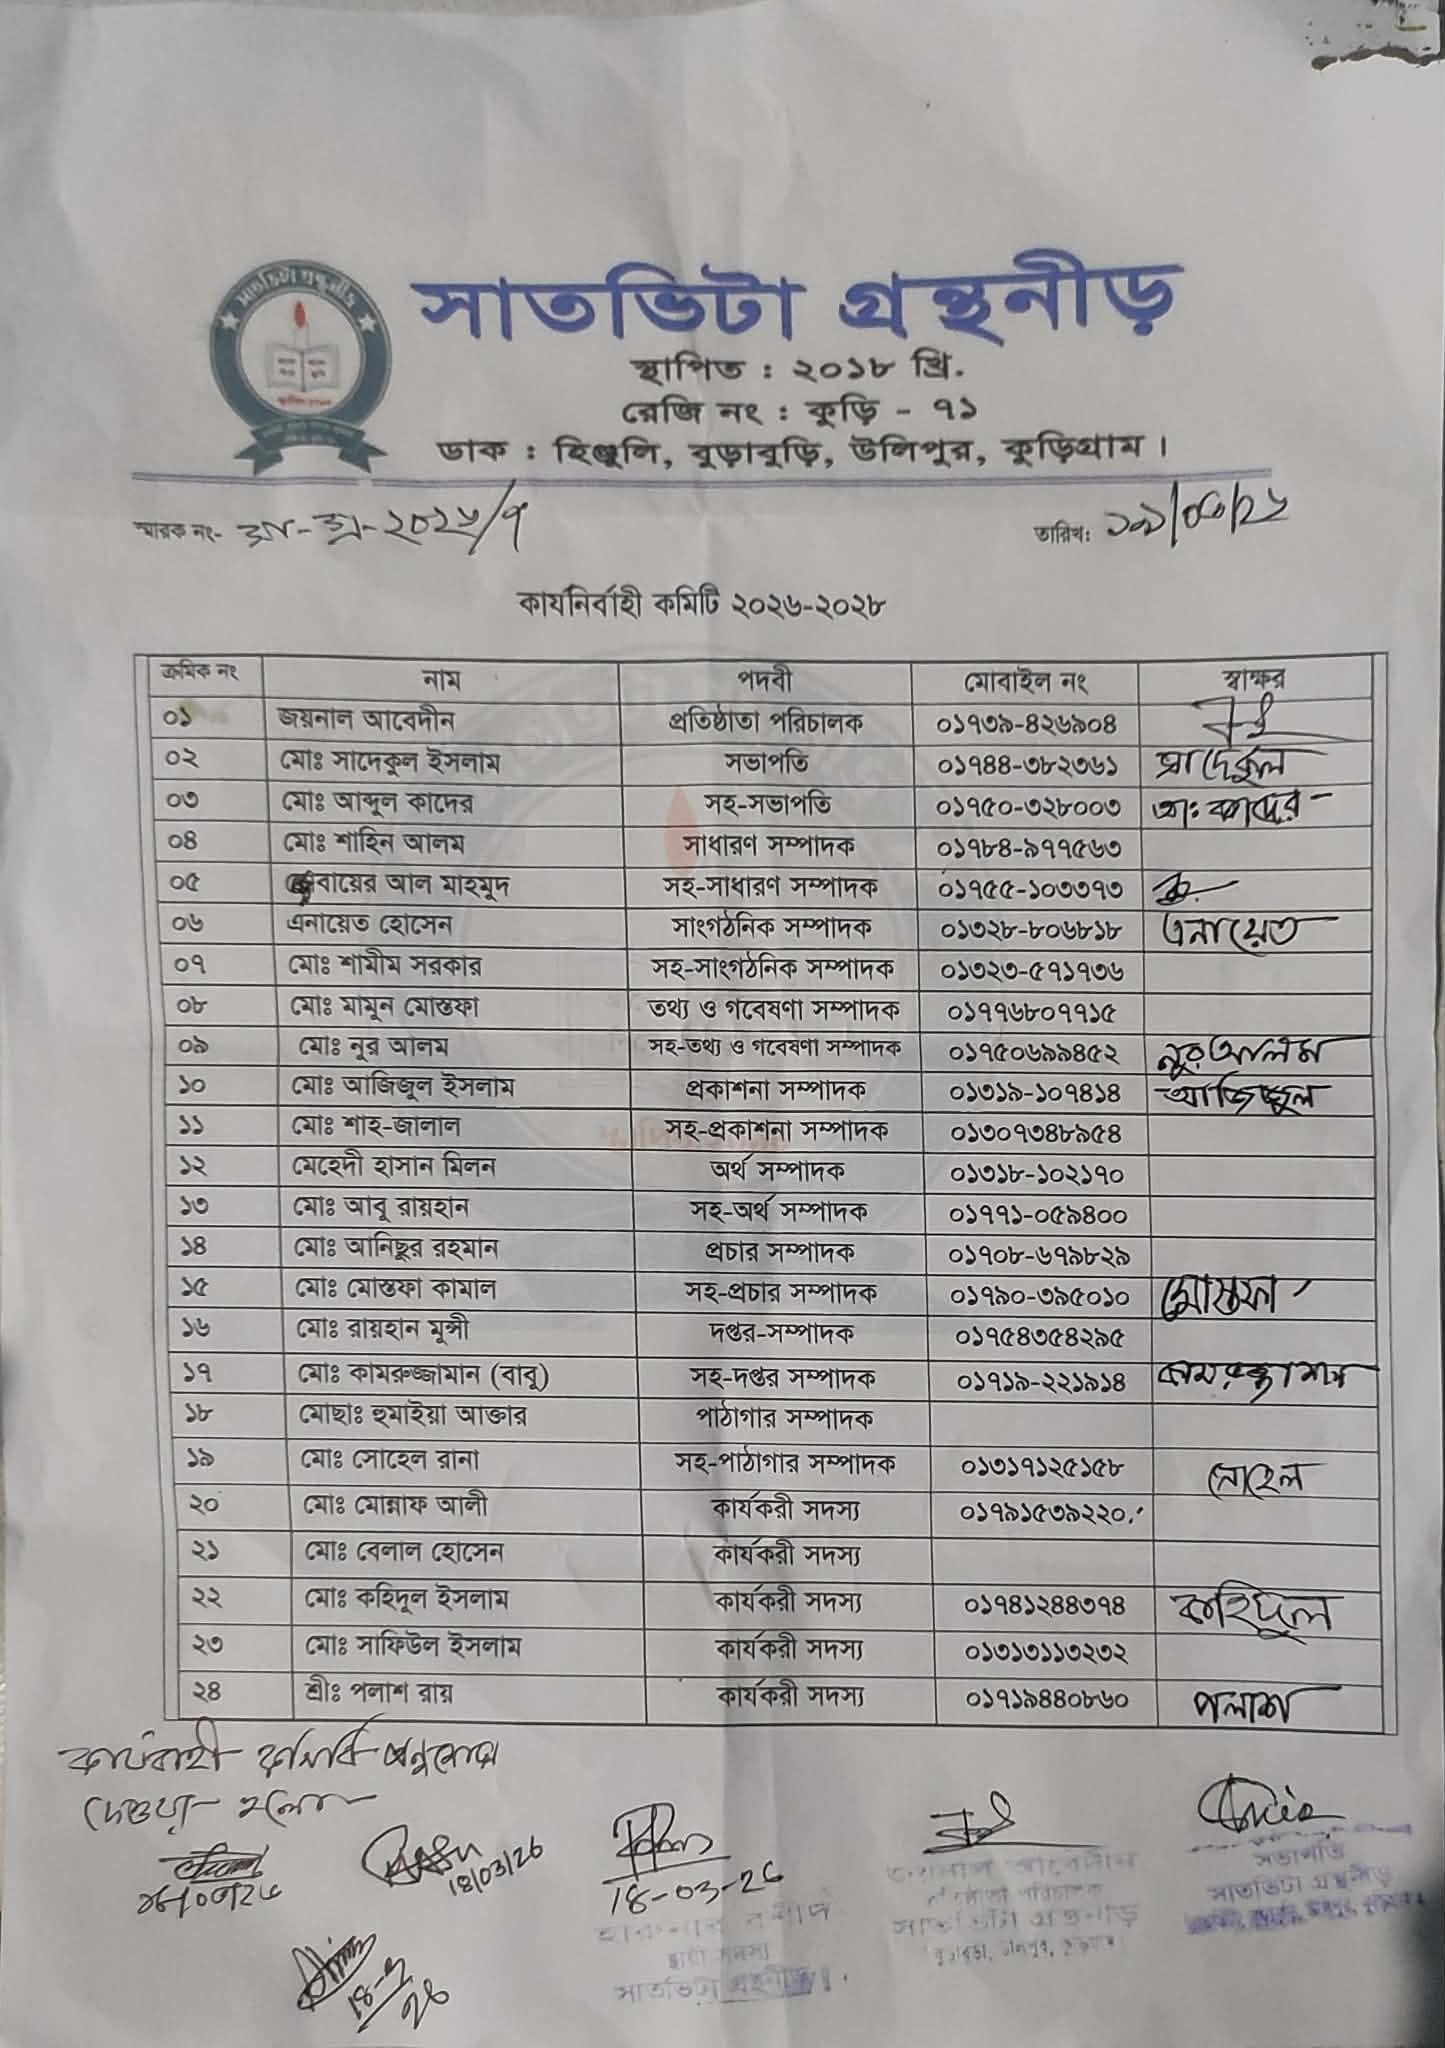 সাতভিটা গ্রন্থনীড়
সাতভিটা গ্রন্থনীড়
স্থাপিত : ২০১৮ খ্রি.
রেজি নং : কুড়ি - ৭১
ডাক : হিঙ্গুলি, বুড়াবুড়ি, উলিপুর, কুড়িগ্রাম।
স্মারক নং- ২০২৬/৭
তারিখ:
কার্যনির্বাহী কমিটি ২০২৬-২০২৮
ক্রমিক নং নাম পদবী মোবাইল নং স্বাক্ষর
০১ জয়নাল আবেদীন প্রতিষ্ঠাতা পরিচালক ০১৭৩৯-৪২৬৯০৪
০২ মোঃ সাদেকুল ইসলাম সভাপতি ০১৭৪৪-৩৮২৩৬১ সাদেকুল
০৩ মোঃ আব্দুল কাদের সহ-সভাপতি ০১৭৫০-৩২৮০০৩ আঃ কাদের
০৪ মোঃ শাহিন আলম সাধারণ সম্পাদক ০১৭৮৪-৯৭৭৫৬৩
০৫ বায়ের আল মাহমুদ সহ-সাধারণ সম্পাদক ০১৭৫৫-১০৩৩৭৩
০৬ এনায়েত হোসেন সাংগঠনিক সম্পাদক ০১৩২৮-৮০৬৮১৮ এনায়েত
০৭ মোঃ শামীম সরকার সহ-সাংগঠনিক সম্পাদক ০১৩২৩-৫৭১৭৩৬
০৮ মোঃ মামুন মোস্তফা তথ্য ও গবেষণা সম্পাদক ০১৭৭৬৮০৭৭১৫
০৯ মোঃ নুর আলম সহ-তথ্য ও গবেষণা সম্পাদক ০১৭৫০৬৯৯৪৫২ নুর আলম
১০ মোঃ আজিজুল ইসলাম প্রকাশনা সম্পাদক ০১৩১৯-১০৭৪১৪ আজিজুল
১১ মোঃ শাহ-জালাল সহ-প্রকাশনা সম্পাদক ০১৩০৭৩৪৮৯৫৪
১২ মেহেদী হাসান মিলন অর্থ সম্পাদক ০১৩১৮-১০২১৭০
১৩ মোঃ আবু রায়হান সহ-অর্থ সম্পাদক ০১৭৭১-০৫৯৪০০
১৪ মোঃ আনিছুর রহমান প্রচার সম্পাদক ০১৭০৮-৬৭৯৮২৯
১৫ মোঃ মোস্তফা কামাল সহ-প্রচার সম্পাদক ০১৭৯০-৩৯৫০১০ মোস্তফা
১৬ মোঃ রায়হান মুন্সী দপ্তর-সম্পাদক ০১৭৫৪৩৫৪২৯৫
১৭ মোঃ কামরুজ্জামান (বাবু) সহ-দপ্তর সম্পাদক ০১৭১৯-২২১৯১৪ কামরুজ্জামান
১৮ মোছাঃ হুমাইয়া আক্তার পাঠাগার সম্পাদক
১৯ মোঃ সোহেল রানা সহ-পাঠাগার সম্পাদক ০১৩১৭১২৫১৫৮ সোহেল
২০ মোঃ মোন্নাফ আলী কার্যকরী সদস্য ০১৭৯১৫৩৯২২০.
২১ মোঃ বেলাল হোসেন কার্যকরী সদস্য
২২ মোঃ কহিদুল ইসলাম কার্যকরী সদস্য ০১৭৪১২৪৪৩৭৪ কহিদুল
২৩ মোঃ সাফিউল ইসলাম কার্যকরী সদস্য ০১৩১৩১১৩২৩২
২৪ শ্রীঃ পলাশ রায় কার্যকরী সদস্য ০১৭১৯৪৪০৮৬০ পলাশ
দেওয়া হলো
18/03/26
18-03-26
18-3
26
জয়নাল আবেদীন
সাতভিটা গ্রন্থনীড়
সভাপতি
সাতভিটা গ্রন্থনীড়
সাতভিটা গ্রন্থনীড়